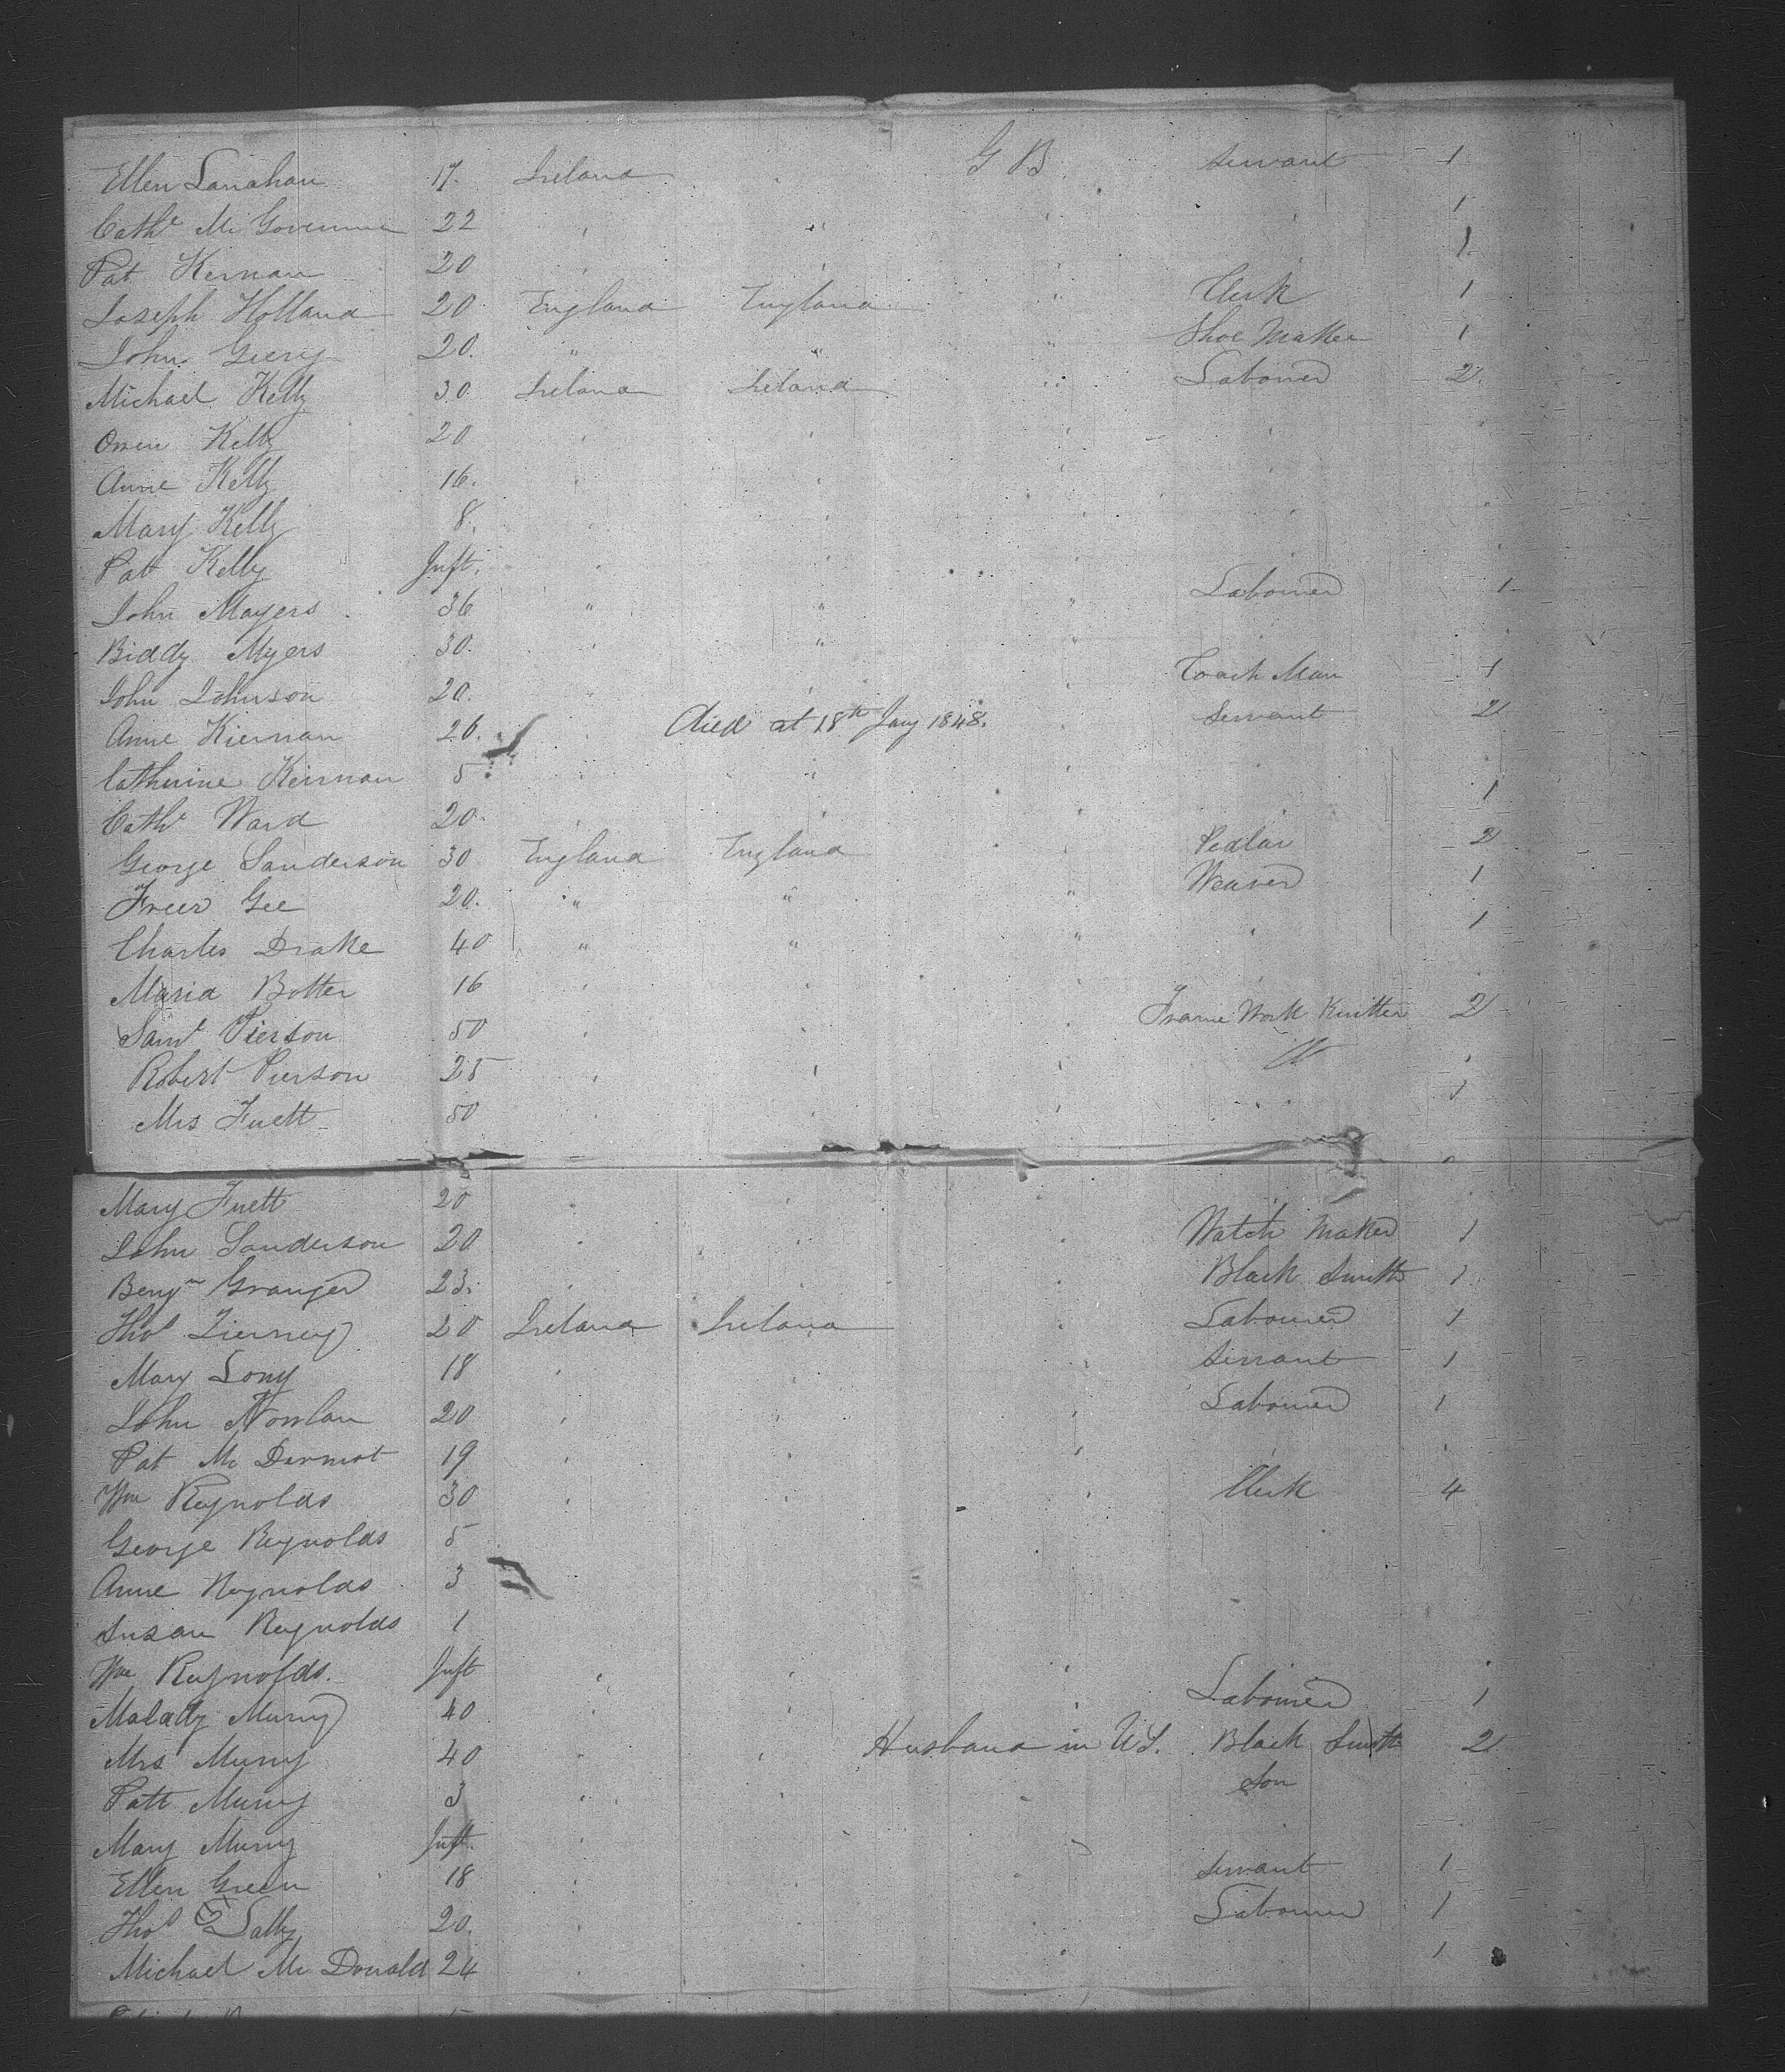 Ellen Lanahan 17. Ireland G B Servant 1
Cathe Mc Govennin 22 " " " " 1
Pat Kernan 20 " " " 1
Joseph Holland 20 England England " Clerk 1
John Geery 20. " " " Shoe Maker 1
Michael Kelly 30 Ireland Ireland " Labourer 2
Owen Kelly 20 " " " "
Anne Kelly 16. " " "
Mary Kelly 8. " " " "
Patt Kelly Inft. " " " "
John Mayers 36 " " " Labourer 1
Biddy Myers 30. " " " "
John Johnson 20. " " " Coach Man 1
Anne Kiernan 26. " Died at 18th Jany 1848. Servant 2
Catherine Keirnan 5 " " " "
Cathe Ward 20 " " " 1
George Sanderson 30 England England " Pedlar 2
Freer Gee 20. " " " Weaver 1
Charles Drake 40 " " " " 1
Maria Botter 16 " " " "
Saml Pierson 50 " " " Frame Work Knitter 2
Robert Pierson 25 " " " "
Mrs Fuett 50 " " " 1
Mary Fuett 20 " " "
John Sanderson 20 " " " Watch Maker 1
Benjn Granger 23. " " " Black Smith 1
Thos Tierney 20 Ireland Ireland " Labourer 1
Mary Long 18 " " " Servant 1
John Nowlan 20 " " " Labourer 1
Pat Mc Dermot 19 " " " " "
Wm Reynolds 30 " " " Clerk 4
George Reynolds 5
Anne Reynolds 3
Susan Reynolds 1
Wm Reynolds. Inft " " "
Malally Murry 40 " " " Labourer 1
Mrs Murry 40 " " Husband in US. Black Smith 2
Patt Murry 3 " " " Son
Mary Murry Inft. "
Ellen Green 18 " " Servant 1
Thos Lally 20. " " Labourer 1
Michael Mc Donald 24 " " " 1